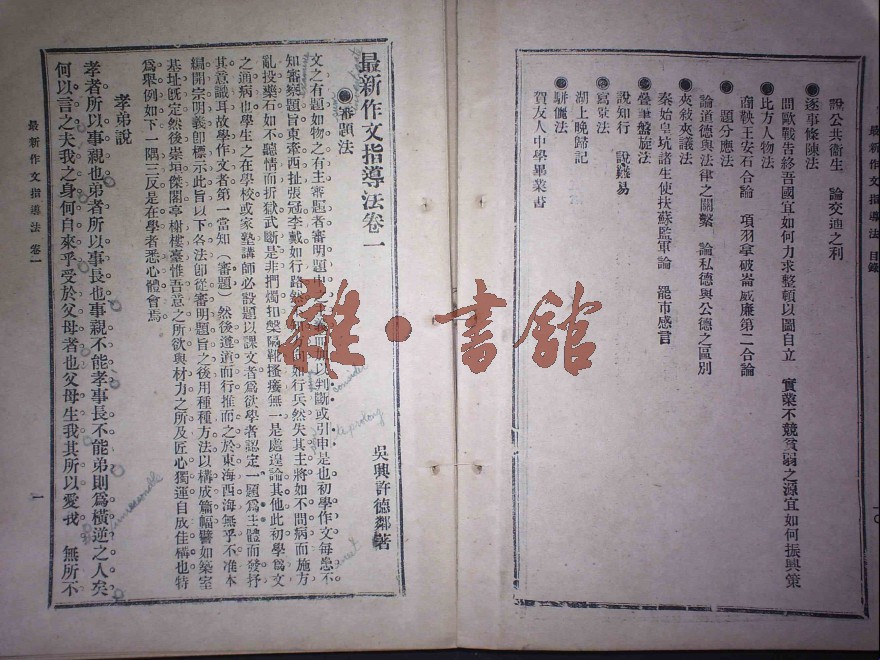 最新作文指導法 目錄
說公共衛生 論交通之利
●逐事條陳法
問歐戰告終吾國宜如何力求整頓以圖自立 實業不競貧弱之源宜如何振興策
●比方人物法
商鞅王安石合論 項羽拿破崙威廉第二合論
●題分應法
論道德與法律之關繫 論私德與公德之區別
●夾敍夾議法
秦始皇坑諸生使扶蘇監軍論 罷市感言
●疊筆盤旋法
說知行 說難易
●寫景法
湖上晚歸記
●駢儷法
賀友人中學畢業書
最新作文指導法卷一
吳興許德鄰著
●審題法
文之有題如物之有主審題者審明題中之
以判斷或引申是也初學作文每患不
知審察題旨東牽西扯張冠李戴如行路然
如行兵然失其主將如不問病而施方
亂投藥石如不聽情而折獄武斷是非捫燭扣槃隔靴搔癢無一是處遑論其他此初學爲文
之通病也學生之在學校或家塾講師必設題以課文者爲欲學者認定一題爲主體而發抒
其意識耳故學作文者第一當知（審題）然後遵道而行推而之於東海西海無乎不準本
編開宗明義卽標示此旨以下各法卽從審明題旨之後用種種方法以構成篇幅譬如築室
基址旣定然後崇垣傑閣亭榭樓臺惟吾意之所欲與材力之所及匠心獨運自成佳構也特
爲舉例如下一隅三反是在學者悉心體會焉
孝弟說
孝者所以事親也弟者所以事長也事親不能孝事長不能弟則爲橫逆之人矣
何以言之夫我之身何自來乎受於父母者也父母生我其所以愛我 無所不
最新作文指導法 卷一
一
雜·書館